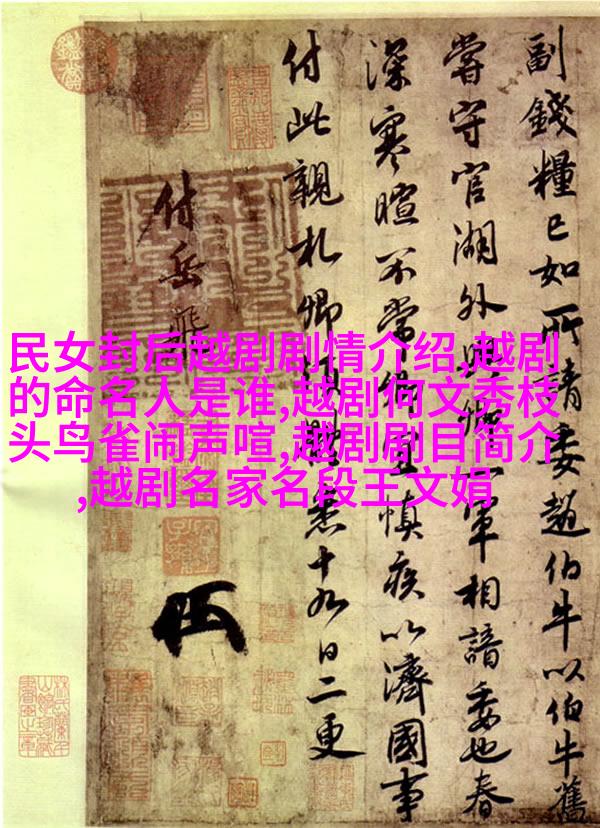 民女封后越剧剧情介绍,越剧
的命名人是谁,越剧何文秀枝
头鸟雀闹声喧,越剧剧目简介
,越剧名家名段王文娟
副錢糧已如所請委趙伯牛以伯牛舊
嘗守官湖外與軍相諳委也春
深寒暄不常卿宜慎疾以濟國事
付此親札卿悉十九日二更
付岳飛